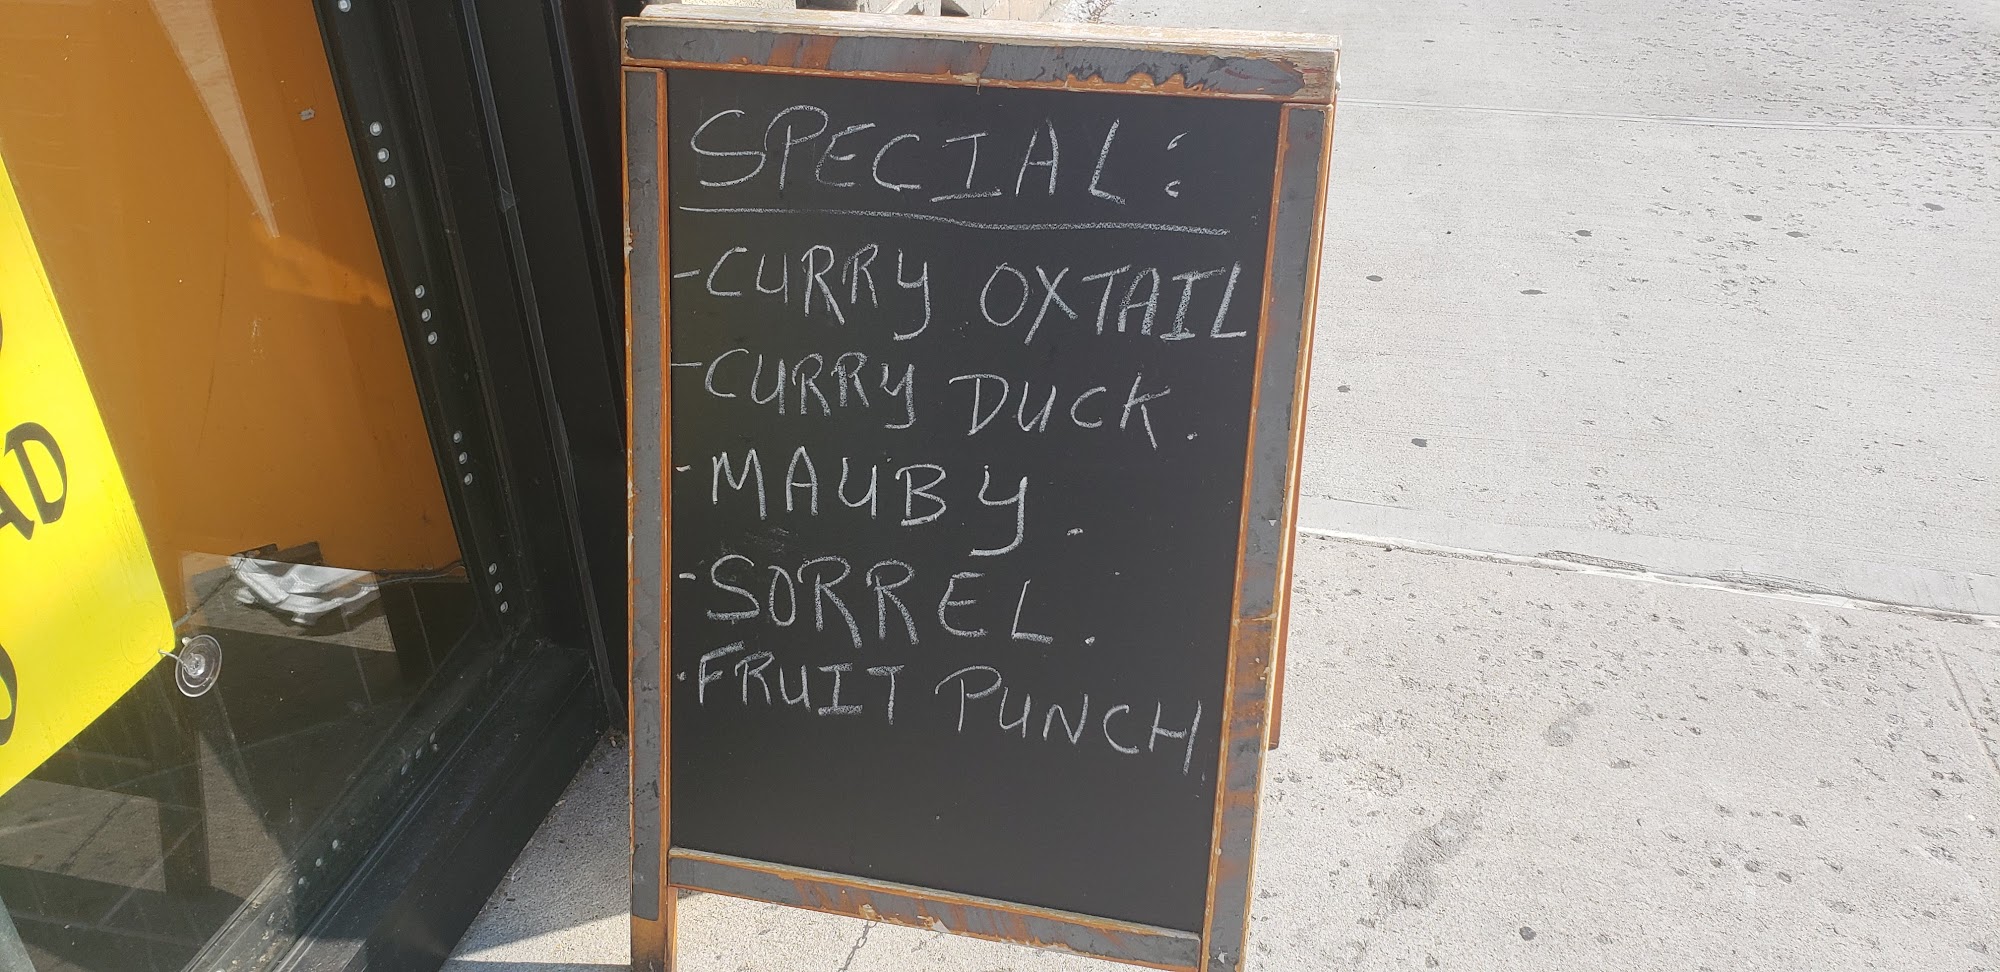 SPECIAL:
-CURRY OXTAIL
-CURRY DUCK.
-MAUBY.
-SORREL.
·FRUIT PUNCH
AD